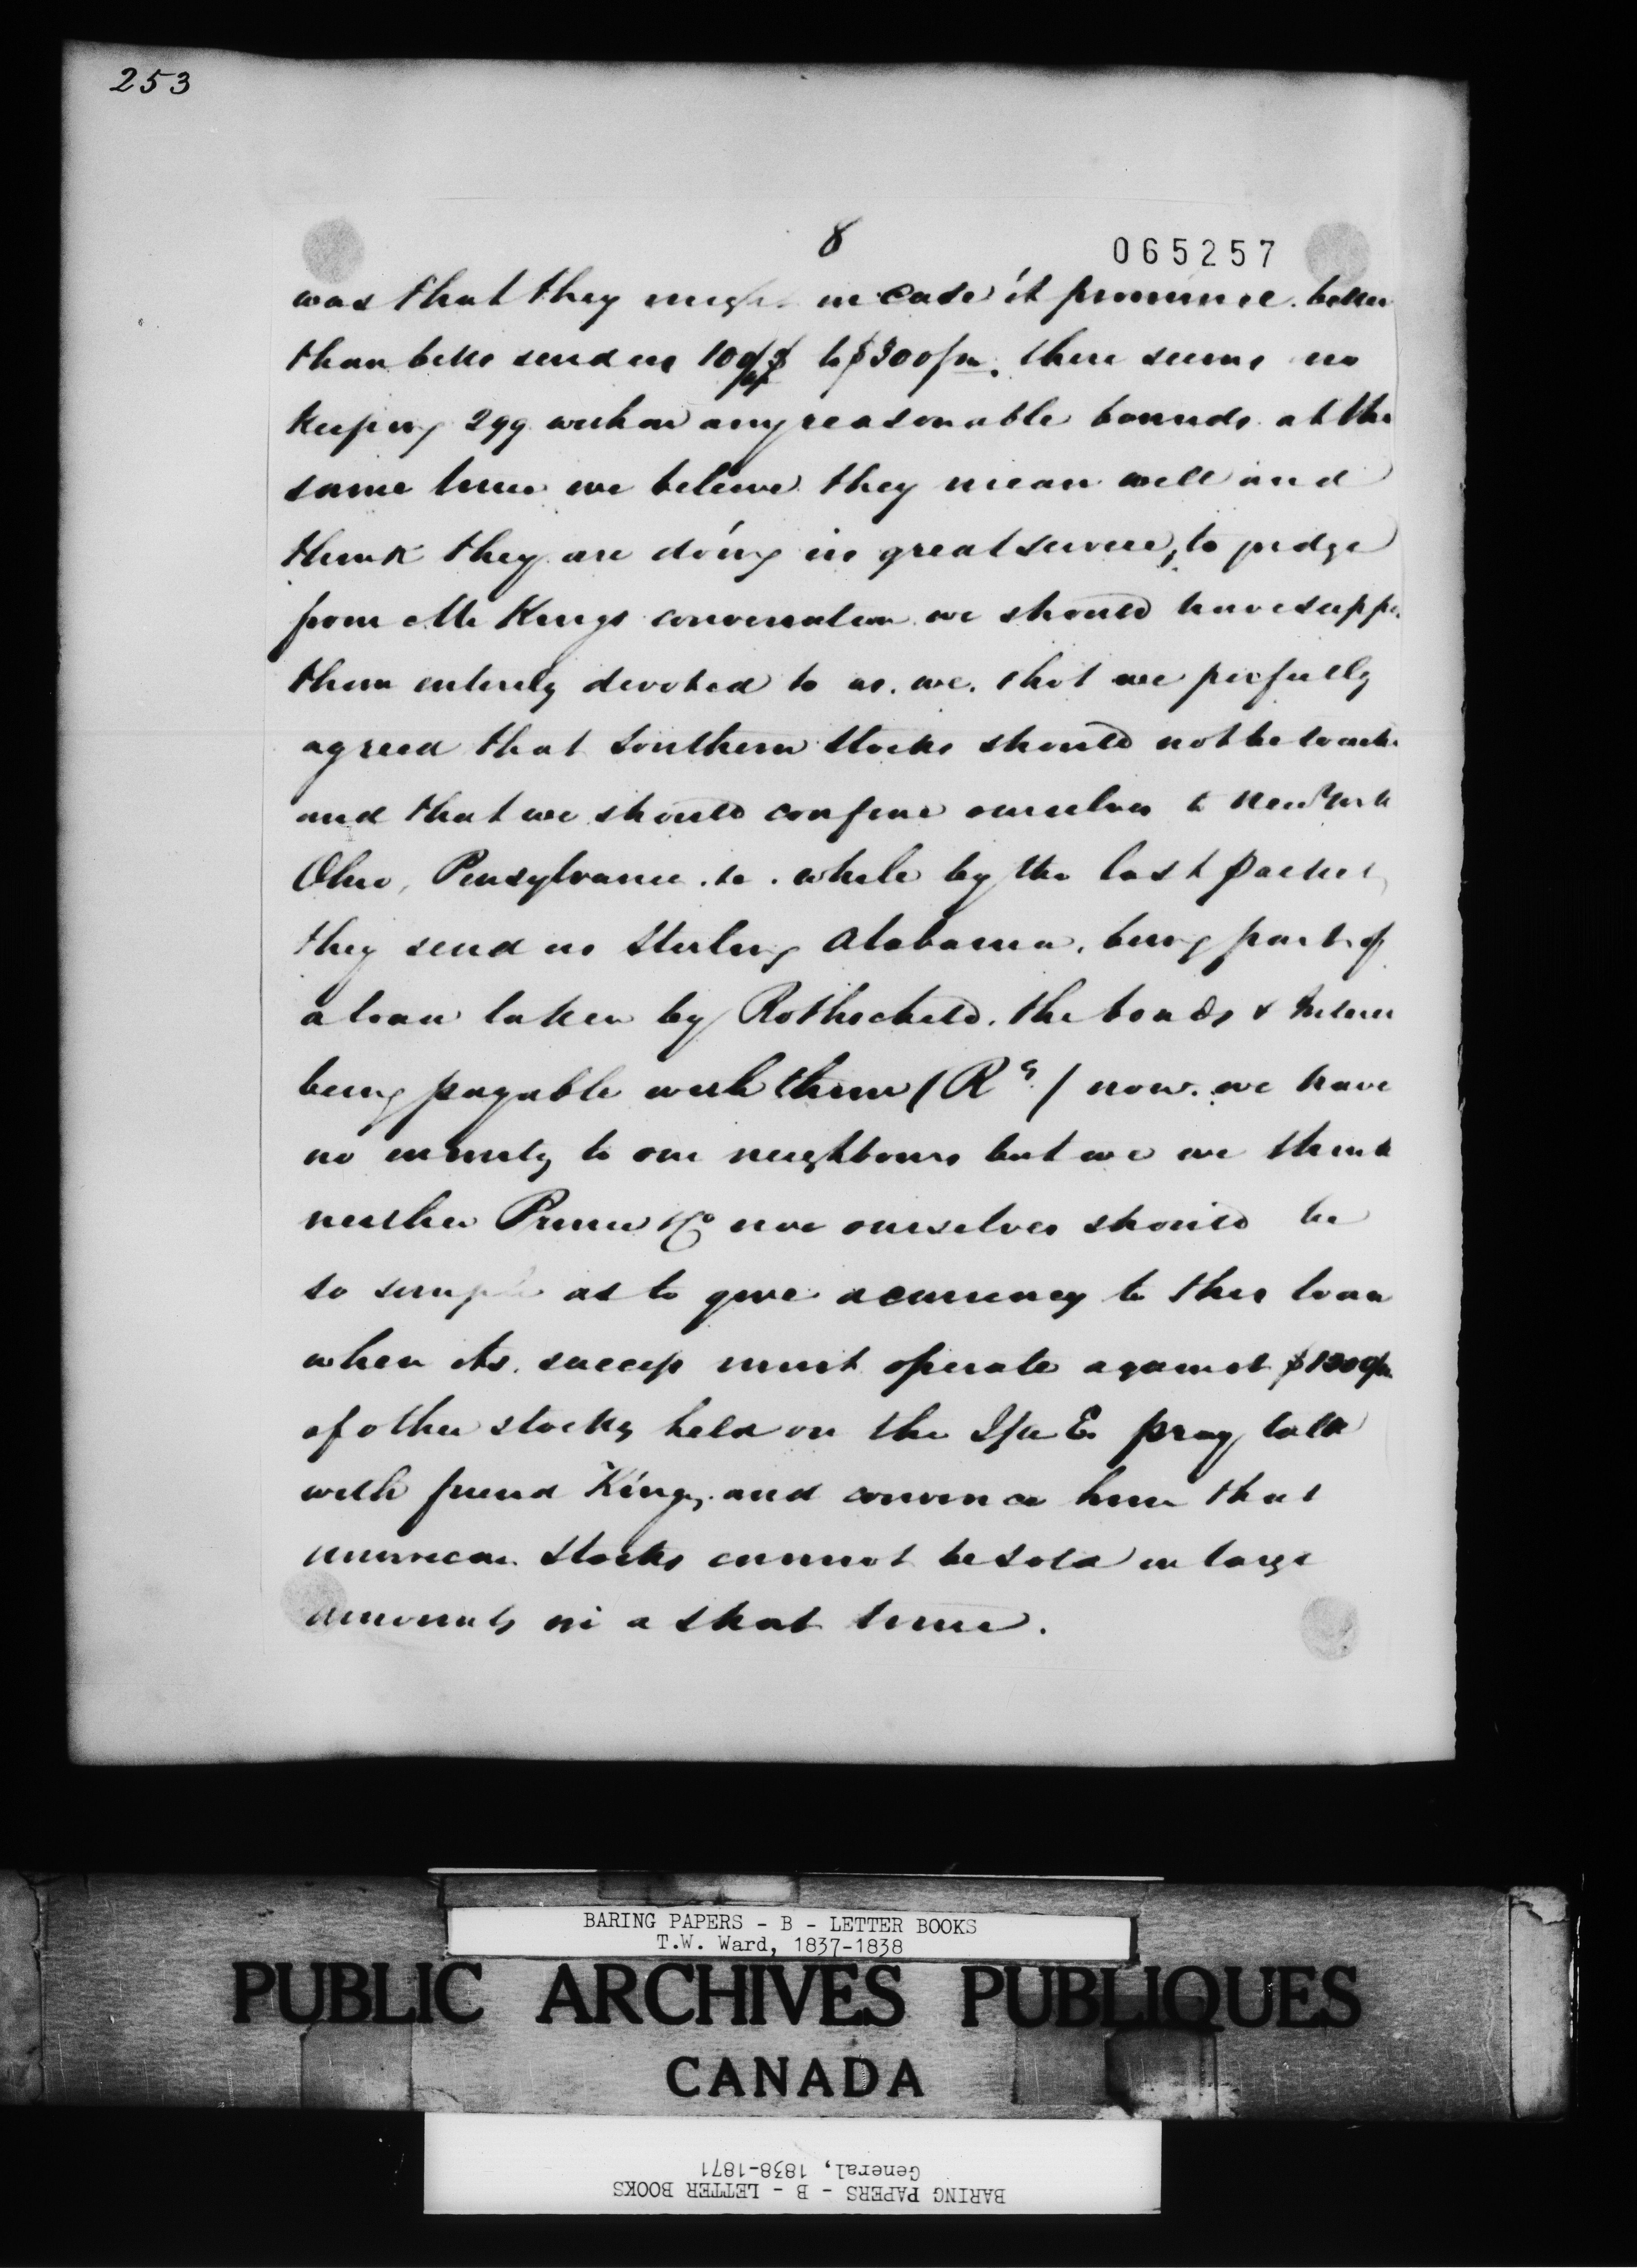 253
8
065257
was that they might in case it promised better
than bills send us 100/m $ to $300/m. there seems no
keeping 299 within any reasonable bounds at the
same time we believe they mean well and
think they are doing us great service, to judge
from Mr Kings conversation we should have suppd
them entirely devoted to us. we. thot we perfectly
agreed that Southern Stocks should not be touchd
and that we should confine ourselves to New York
Ohio, Pensylvania. &c. while by the last packet,
they send us Sterling Alabama, being part of
a loan taken by Rothschild. the bonds & Interest
being payable with them (Rs.) now. we have
no enmity to our neighbours but we we think
neither Prime &Co nor ourselves should be
so simple as to give a currency to this loan
when its. success must operate against $1300/m
of other stocks held on the J/a E. pray talk
with friend King, and convince him that
american Stocks cannot be sold in large
amounts in a short time.
BARING PAPERS - B - LETTER BOOKS
T.W. Ward, 1837-1838
PUBLIC ARCHIVES PUBLIQUES
CANADA
BARING PAPERS - B - LETTER BOOKS
General, 1838-1871